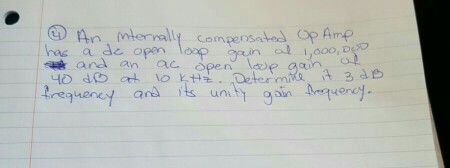 ④ An internally compensated Op Amp
has a dc open loop gain of 1,000,000
and an ac open loop gain of
40 dB at 10 kHz. Determine it 3 dB
frequency and its unity gain frequency.